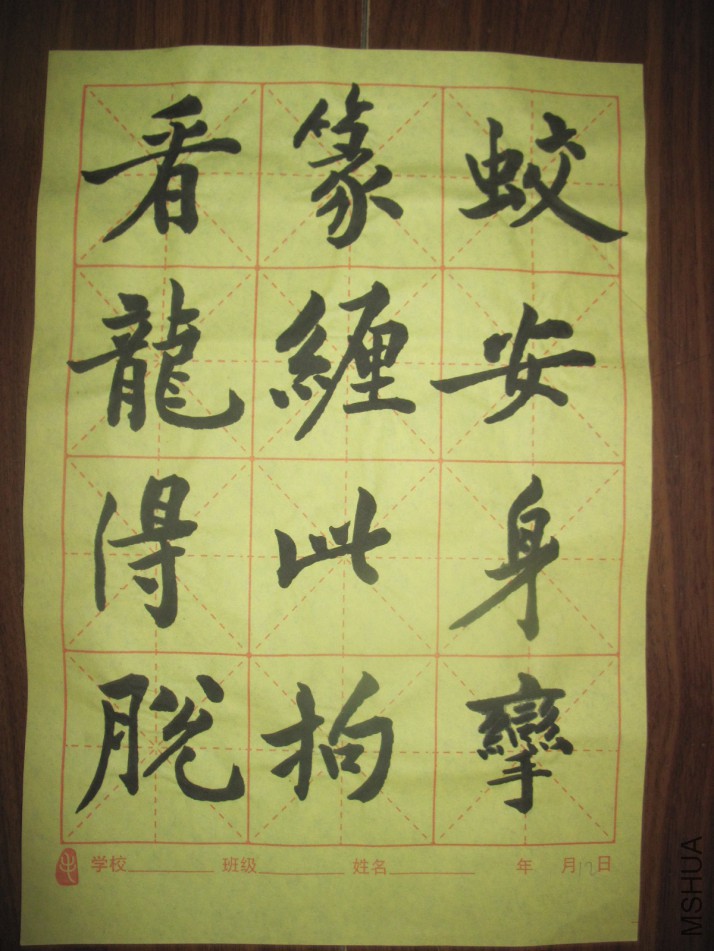 看篆蛟
龍纏安
得此身
脱拘攣
学校________ 班级________ 姓名________ 年 月17日
MSHUA